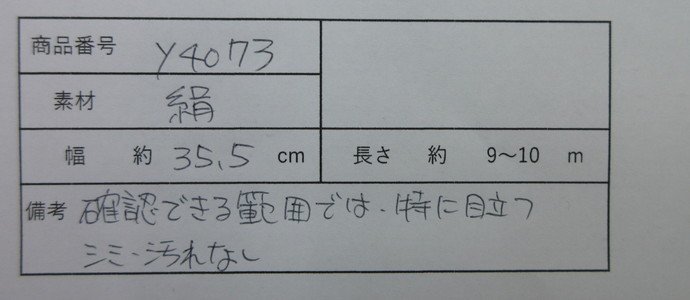 商品番号 Y4073
素材 絹
幅 約 35.5 cm 長さ 約 9～10 m
備考 確認できる範囲では、特に目立つ
シミ・汚れなし